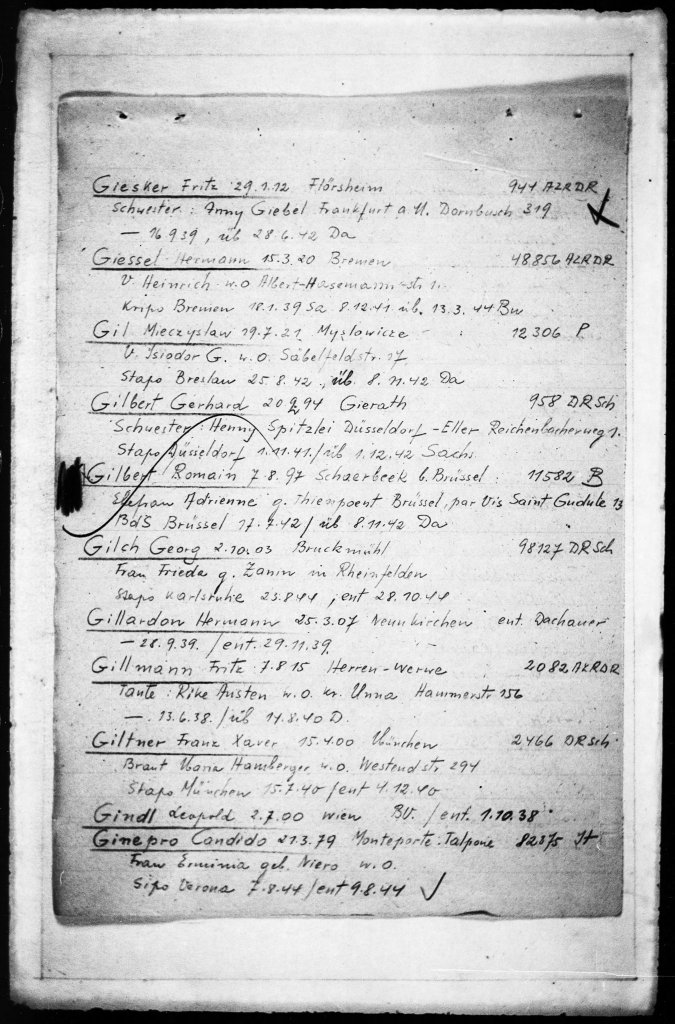 Giesker Fritz 29.1.12 Flörsheim 941 AZR DR
Schwester: Anny Giebel Frankfurt a M. Dornbusch 319
— 16.9.39, üb 28.6.42 Da
Giessel Hermann 15.3.20 Bremen 48856 AZR DR
V. Heinrich w.o Albert-Hasemann-str 1.
Kripo Bremen 18.1.39 Sa 8.12.41 üb. 13.3.44 Bu
Gil Mieczyslaw 19.7.21 Myslowicze 12306 P
V. Isiodor G. w.o. Säbelfeldstr. 17
Stapo Breslau 25.8.42, üb. 8.11.42 Da
Gilbert Gerhard 20 2 94 Gierath 958 DR Sch
Schwester Henny Spitzlei Düsseldorf-Eller Reichenbacherweg 1.
Stapo Düsseldorf 1.11.41./üb 1.12.42 Sachs
Gilbert Romain 7.8.97 Schaerbeek b. Brüssel 11582 B
Ehefrau Adrienne g. Thienpoent Brüssel, par Vis Saint Gudule 13
BdS Brüssel 17.7.42/üb 8.11.42 Da
Gilch Georg 2.10.03 Bruckmühl 98127 DR Sch
Frau Frieda g. Zanin in Rheinfelden
Stapo Karlsruhe 23.8.44, ent 28.10.44
Gillardon Hermann 25.3.07 Neunkirchen ent. Dachauer
— 28.9.39. /ent. 29.11.39
Gillmann Fritz 7.8 15 Herren-Werwe 2082 AZR DR
Tante: Rike Austen w.o. Kr. Unna Hammerstr 156
—. 13.6.38./üb 14.8.40 D.
Giltner Franz Xaver 15.4.00 München 2466 DR Sch
Braut Maria Hamberger w.o. Westendstr 294
Stapo München 15.7.40/ent 4.12.40
Gindl Leopold 2.7.00 Wien BV. /ent. 1.10.38
Ginepro Candido 21.3.79 Monteporte. Talpone 82375 It
Frau Erminia geb. Niero w.o.
Sipo Verona 7.8.44/ent 9.8.44